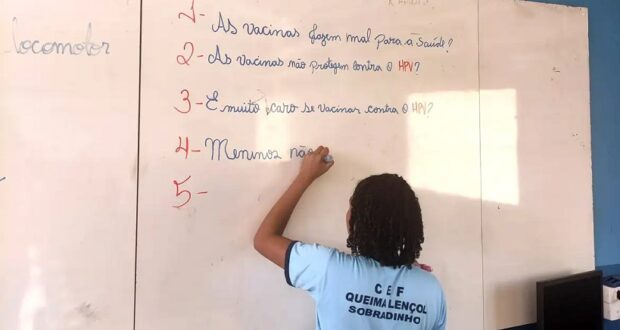 locomotor
1- As vacinas fazem mal para a Saúde?
2- As vacinas não protegem contra o HPV?
3- É muito caro se vacinar contra o HPV?
4- Meninos não
5-
CEF
QUEIMA LENÇOL
SOBRADINHO